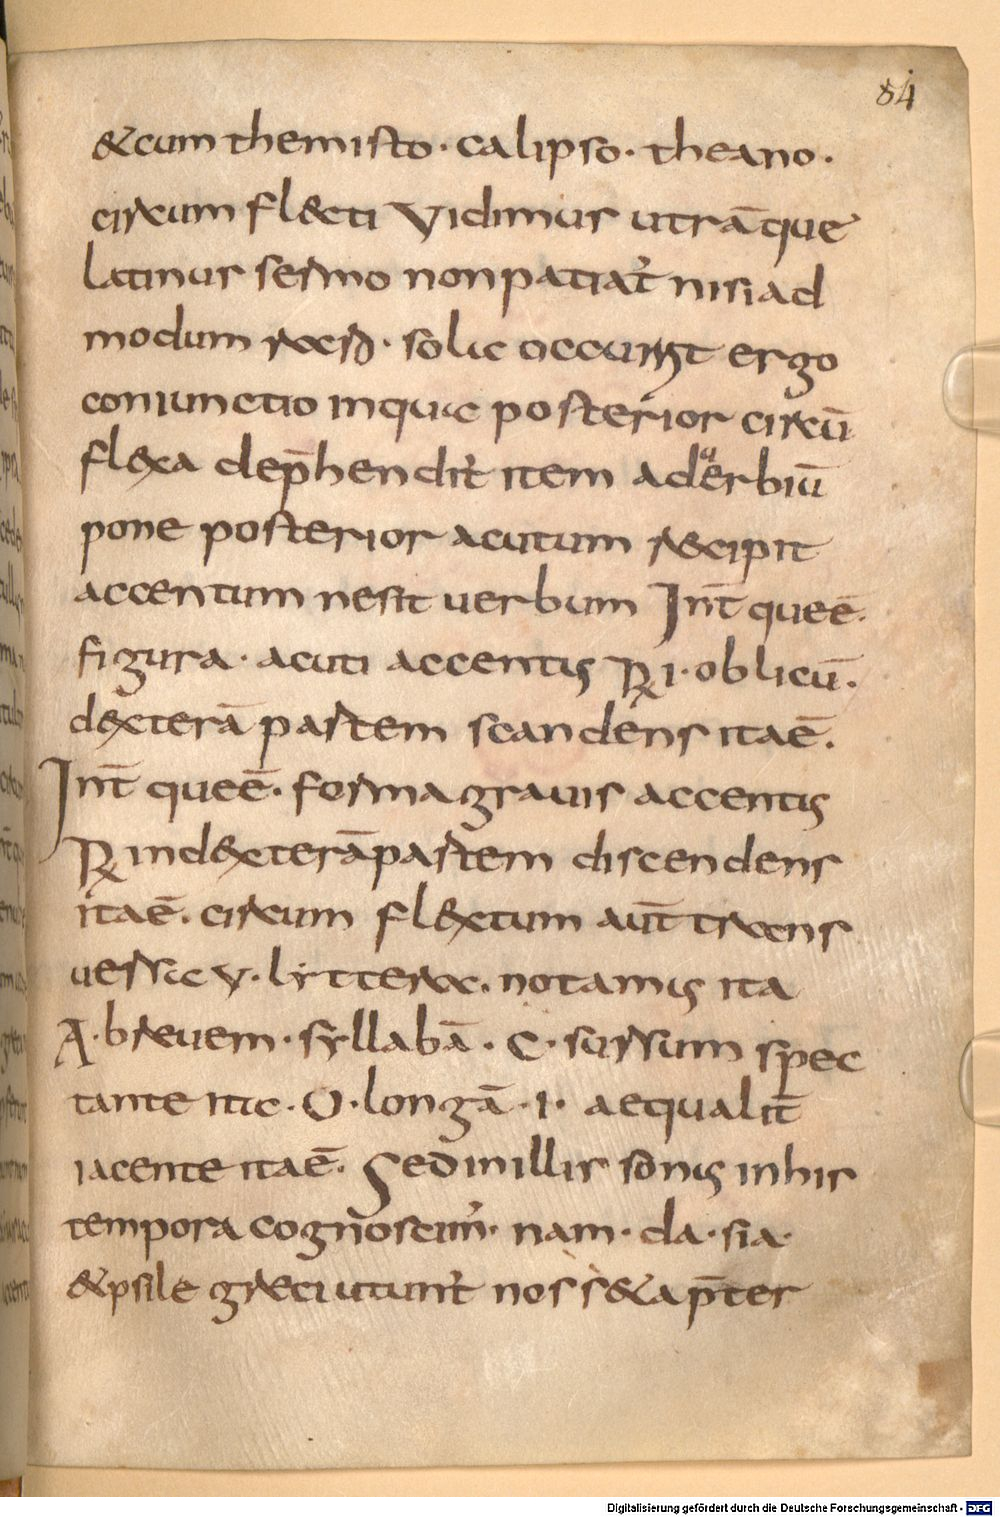 84
&cum themisto · calipso · theano ·
circum fl&cti vidimus utrāque
latinus sermo non patiat̉ nisi ad
modum raro · solic occurrit ergo
coniunctio inquit posterior circū
fl&xa dep̄hendit̉ item aduerbiū
pone posterior acutum recipit
accentum ne sit uerbum Int̄ queē
figura · acuti accentus R̨ I · oblicū ·
d&xterā partem scandens itaē ·
Int̄ queē · forma grauis accentus
R̨ in d&xterā partem discendens
itaē · circum fl&xtum aut̄ trans
uersae v · lytterae · notamus ita
A · breuem · syllabā · C · sursum spec
tante itic · O · longā · I · aequalit̄
iacente itaē · Sed in illis sonus in his
tempora cognoscim̉ · nam · da · sia ·
&psile greci utunt̉ nos s&a p̄ter
Digitalisierung gefördert durch die Deutsche Forschungsgemeinschaft - DFG